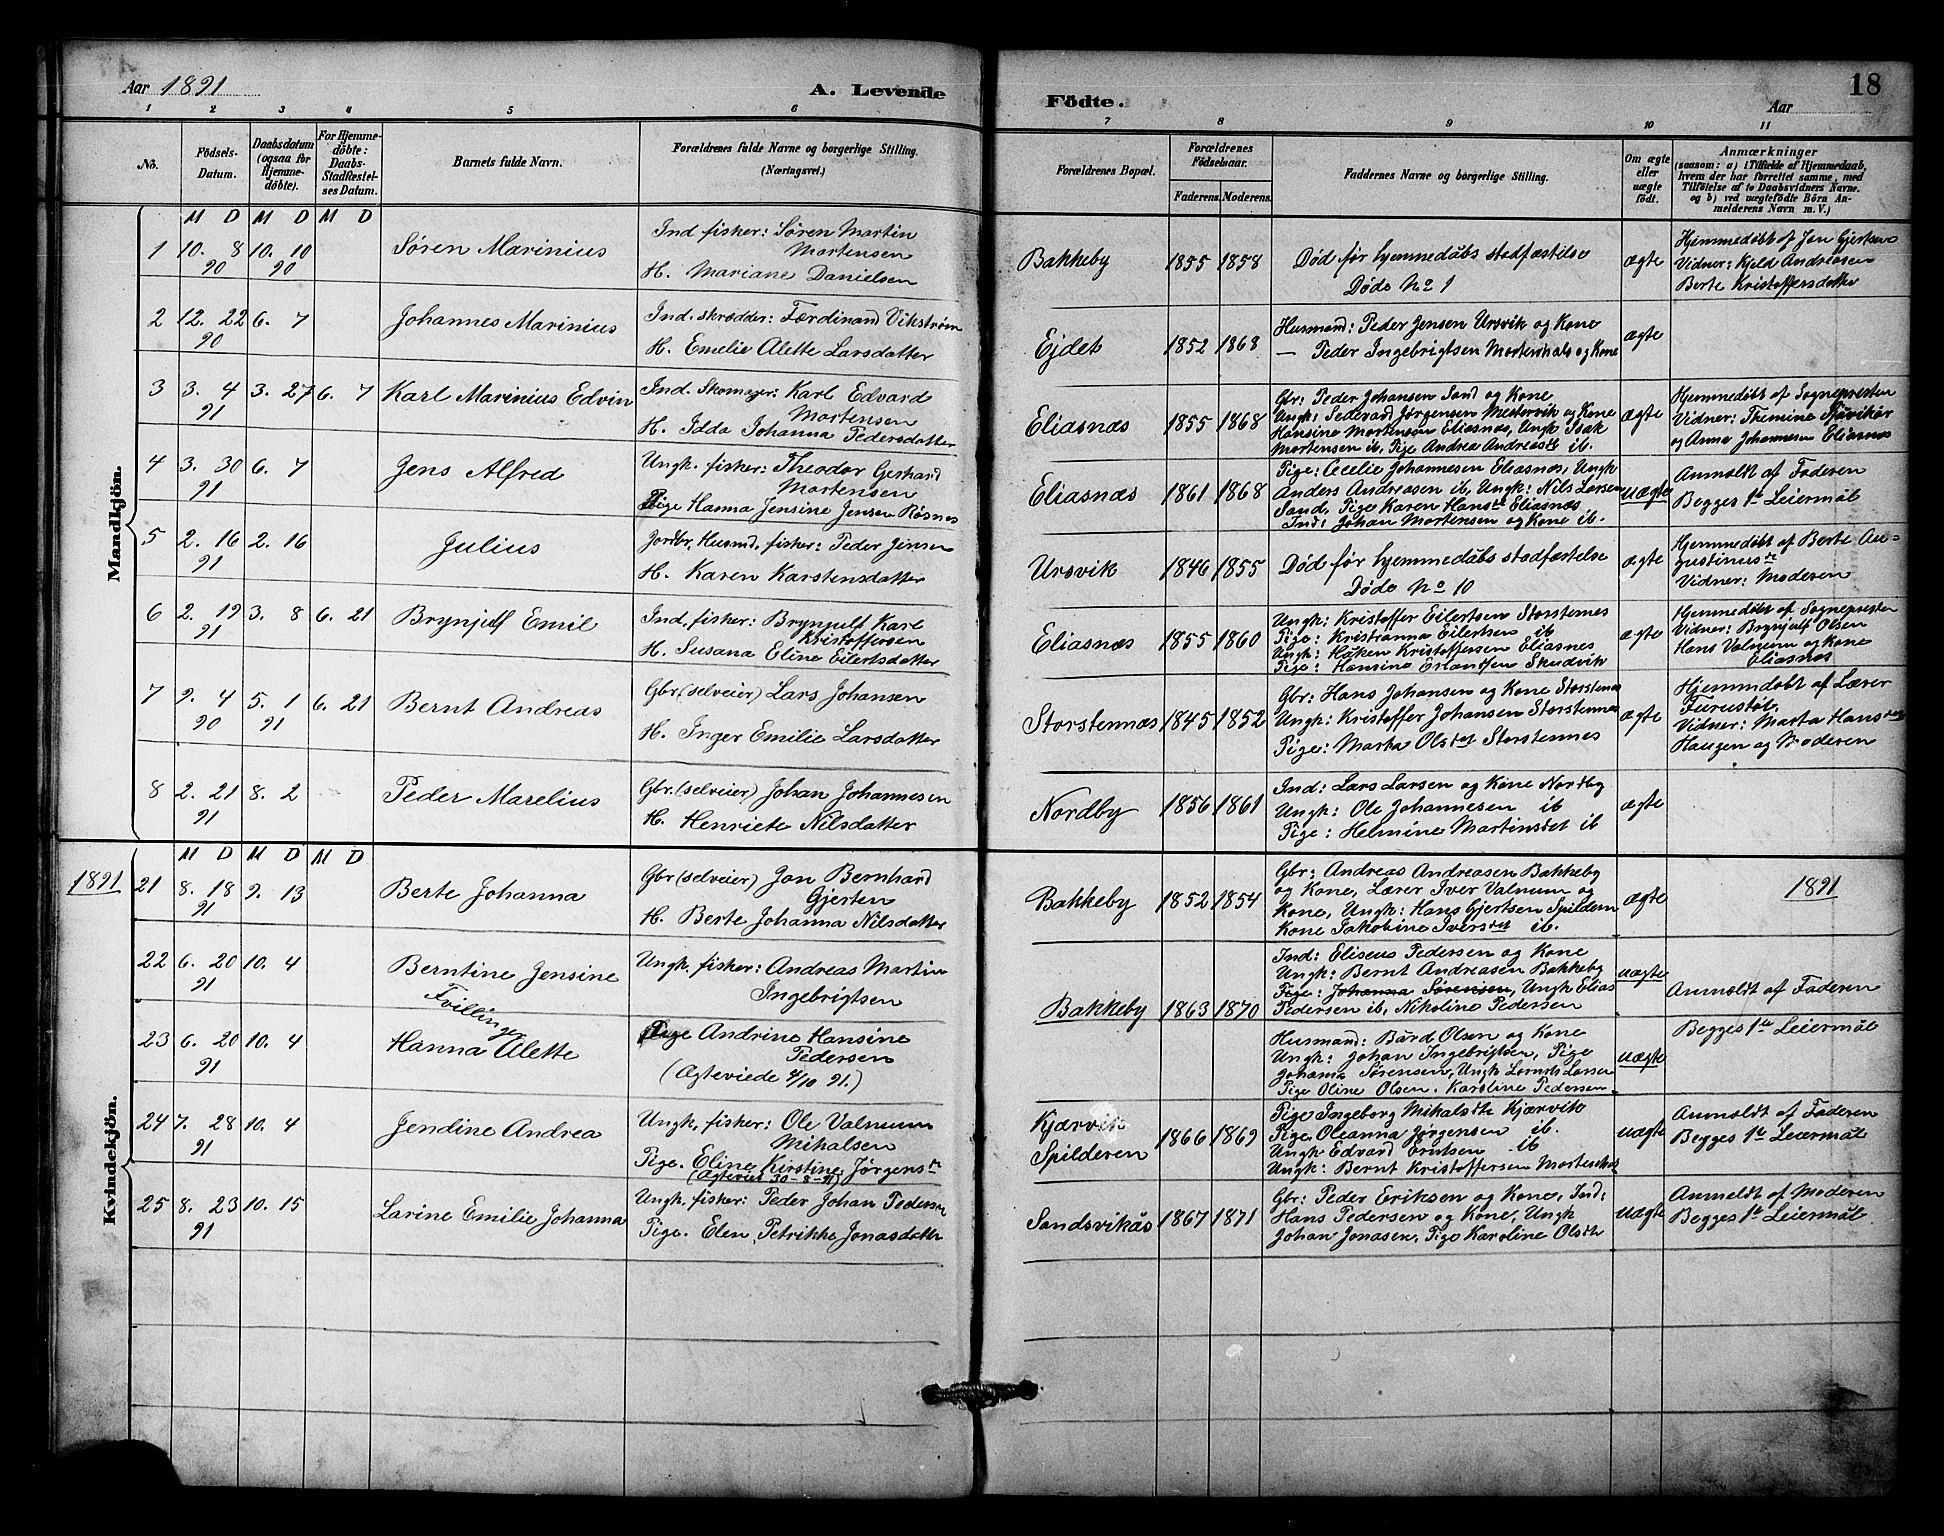 Aar 1891
A. Levende
Födte.
Aar
18
1 2 3 4 5 6 7 8 9 10 11
Nô.
Födsels-
Datum.
Daabsdatum
(ogsaa for
Hjemme-
döbte).
For Hjemme-
döbte:
Daabs-
Stadfæstel-
ses Datum.
Barnets fulde Navn.
Forældrenes fulde Navne og borgerlige Stilling.
(Næringsvei.)
Forældrenes Bopæl.
Forældrenes
Födselsaar.
Faderens. Moderens.
Faddernes Navne og borgerlige Stilling.
Om ægte
eller
uægte
födt.
Anmærkninger
(saasom: a) i Tilfælde af Hjemmedaab,
hvem der har forrettet samme, med
Tilföielse af to Daabsvidners Navne,
og b) ved uægtefödte Börn An-
melderens Navn m. V.)
Mandkjön.
M D M D M D
1 10. 8 10. 10
90 90
Søren Marinius
Ind fisker: Søren Martin
Mortensen
H. Mariane Danielsen
Bakkeby
1855 1858
Død før hjemmedåbs stadfæstelse
Døde No 1
ægte
Hjemmedøbt af Jon Gjertsen
Vidner: Kjeld Andreasen
Berte Kristoffersdatter
2 12. 22 6. 7
90
Johannes Marinius
Ind. skrædder: Færdinand Vikstrøm
H. Emelie Alette Larsdatter
Ejdet
1852 1868
Husmand: Peder Jensen Ursvik og Kone
— Peder Ingebrigtsen Mortenhals og Kone
ægte
3 3. 4 3. 27 6. 7
91
Karl Marinius Edvin
Ind. Skomager: Karl Edvard
Mortensen
H. Idda Johanna Pedersdatter
Eliasnæs
1855 1868
Gbr: Peder Johansen Sand og Kone
Ungk: Sedevard Jørgensen Mestervik og Kone
Hansine Mortensen Eliasnæs, Ungk Isak
Mortensen ib, Pige Andrea Andreasdt ib.
ægte
Hjemmedøbt af Sognepresten
Vidner: Themine
og Anna Johannesen Eliasnæs
4 3. 30 6. 7
91
Jens Alfred
Ungk. fisker: Theodor Gerhard
Mortensen
Pige Hanna Jensine Jensen Røsnes
Eliasnæs
1861 1868
Pige: Cecelie Johannesen Eliasnæs, Ungk
Anders Andreasen ib, Ungk: Nils Larsen
Sand, Pige Karen Hansdt Eliasnæs
Ind: Johan Mortensen og Kone ib.
uægte
Anmeldt af Faderen
Begges 1te Leiermål
5 2. 16 2. 16
91
Julius
Jordbr, Husmd, fisker: Peder Jensen
H. Karen Karstensdatter
Ursvik
1846 1855
Død før hjemmedåbs stadfæstelse
Døde No 10
ægte
Hjemmedøbt af Berte Au-
gustinusdt
Vidner: Moderen
6 2. 19 3. 8 6. 21
91
Brynjulf Emil
Ind. fisker: Brynjulf Karl
Kristoffersen
H. Susana Eline Eilertsdatter
Eliasnæs
1855 1860
Ungk: Kristoffer Eilertsen Storstennes
Pige: Kristianna Eilertsen ib
Ungk: Håken Kristoffersen Eliasnes
Pige: Hansine Erlandsen Skudvik
ægte
Hjemmedøbt af Sognepresten
Vidner: Brynjulf Olsen
Hans Valnum og Kone
Eliasnæs
7 9. 4 5. 1 6. 21
90 91
Bernt Andreas
Gbr. (selveier) Lars Johansen
H. Inger Emilie Larsdatter
Storstennæs
1845 1852
Gbr: Hans Johansen og Kone Storstennes
Ungk: Kristoffer Johansen Storstennes
Pige: Marta Olsdat Storstennes
ægte
Hjemmdøbt af Lærer
Furustøl
Vidner: Marta Hansdat
Haugen og Moderen
8 2. 21 8. 2
91
Peder Marelius
Gbr. (selveier) Johan Johannesen
H. Henriete Nilsdatter
Nordby
1856 1861
Ind: Lars Larsen og Kone Nordby
Ungk: Ole Johannesen ib
Pige: Helmine Martinsdet ib
ægte
Kvindekjön.
M D M D M D
1891 21 8. 18 9. 13
91
Berte Johanna
Gbr (selveier) Jon Bernhard
Gjerten
H. Berte Johanna Nilsdatter
Bakkeby
1852 1854
Gbr: Andreas Andreasen Bakkeby
og Kone, Lærer Iver Valnum og
Kone, Ungk: Hans Gjertsen Spildern
Kone Jakobine Iversdat ib.
ægte
1891
22 6. 20 10. 4
91
Berntine Jensine
Tvillinger
Ungk. fisker: Andreas Martin
Ingebrigtsen
Bakkeby
1863 1870
Ind: Eliseus Pedersen og Kone
Ungk: Bernt Andreasen Bakkeby
Pige: Johanna Sørensen, Ungk Elias
Pedersen ib, Nikoline Pedersen
uægte
Anmeldt af Faderen
23 6. 20 10. 4
91
Hanna Alette
Pige Andrine Hansine
Pedersen
(Ægteviede 4/10 91.)
Husmand: Bård Olsen og Kone
Ungk: Johan Ingebrigtsen, Pige
Johanna Sørensen, Ungk Larsen
Pige Oline Olsen. Karoline Pedersen
uægte
Begges 1te Leiermål
24 7. 28 10. 4
91
Jendine Andrea
Ungk. fisker: Ole Valnum
Mihalsen
Pige. Eline Kirstine Jørgensdt
(Ægteviet 30-8-91)
Kjærvik
Spilderen
1866 1869
Pige Ingeborg Mihalsdtr Kjærvik
Pige. Oleanna Jørgensen ib.
Ungk Edvard Erntsen ib
Ungk: Bernt Kristoffersen
uægte
Anmeldt af Faderen
Begges 1te Leiermål
25 8. 23 10. 15
91
Larine Emilie Johanna
Ungk. fisker: Peder Johan Pedersen
Pige. Elen, Petrikke Jonasdatter
Sandsvikås
1867 1871
Gbr: Peder Eriksen og Kone, Ind:
Hans Pedersen og Kone, Ungk
Johan Jonasen, Pige Karoline Olsdtr
uægte
Anmeldt af Moderen
Begges 1te Leiermål